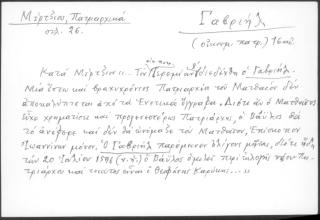 Μέρτζιου, Πατριαρχικά
σελ. 26.
Γαβριήλ
(οἰκουμ. πατρ.) 16 αἰ.
Κατὰ Μέρτζιον "... Τὸν Ἱερεμίαν διεδέχθη ὁ Γαβριήλ.
Μιὰ ἔστω καὶ βραχυχρόνιος Πατριαρχία τοῦ Ματθαίου δὲν
ἀποκαλύπτεται ἀπὸ τὰ Ἑνετικὰ ἔγγραφα. Διότι ἂν ὁ Ματθαῖος
εἶχε χρηματίσει καὶ προηγουμένως Πατριάρχης, ὁ Βάϊλος θὰ
τὸ ἀνέφερε καὶ δὲν θὰ ὠνόμαζε τὸν Ματθαῖον, Ἐπίσκοπον
Ἰωαννίνων μόνον. Ὁ Γαβριὴλ παρέμεινεν ὀλίγους μῆνας, διότι ἤδη
τὴν 20 Ἰουλίου 1596 (ν.ἡ.) ὁ Βάϊλος ὁμιλεῖ περὶ ἐκλογῆς νέου Πα-
τριάρχου καὶ τοιοῦτος εἶναι ὁ Θεοφάνης Καρύκης..."